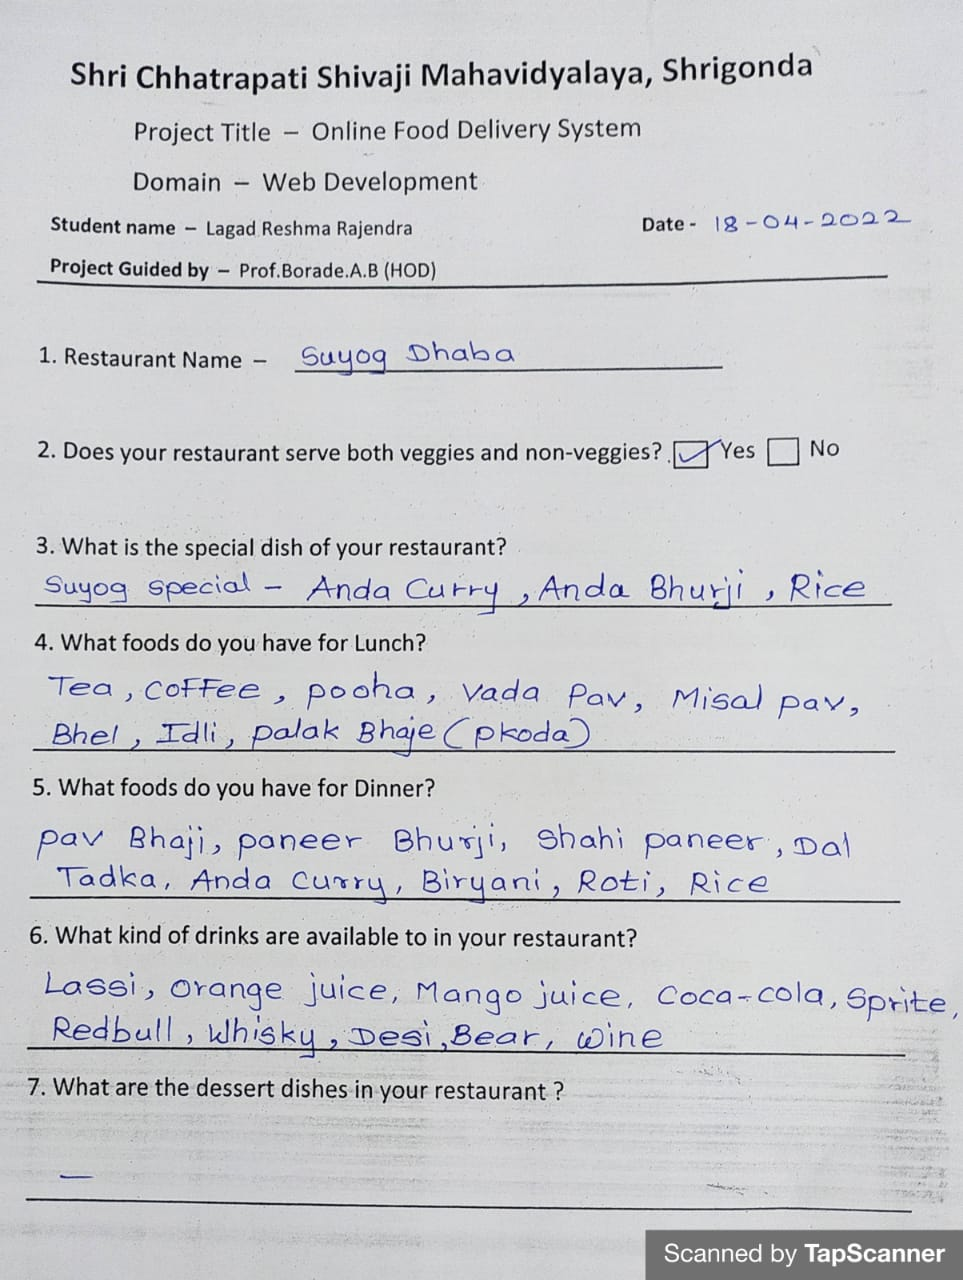 Shri Chhatrapati Shivaji Mahavidyalaya, Shrigonda
Project Title – Online Food Delivery System
Domain – Web Development
Student name – Lagad Reshma Rajendra Date - 18-04-2022
Project Guided by – Prof.Borade.A.B (HOD)
1. Restaurant Name – Suyog Dhaba
2. Does your restaurant serve both veggies and non-veggies? Yes No
3. What is the special dish of your restaurant?
Suyog special - Anda Curry, Anda Bhurji, Rice
4. What foods do you have for Lunch?
Tea, Coffee, pooha, Vada Pav, Misal pav,
Bhel, Idli, palak Bhaje (pkoda)
5. What foods do you have for Dinner?
pav Bhaji, paneer Bhurji, Shahi paneer, Dal
Tadka, Anda Curry, Biryani, Roti, Rice
6. What kind of drinks are available to in your restaurant?
Lassi, Orange juice, Mango juice, Coca-cola, Sprite,
Redbull, Whisky, Desi, Bear, wine
7. What are the dessert dishes in your restaurant ?
—
Scanned by TapScanner